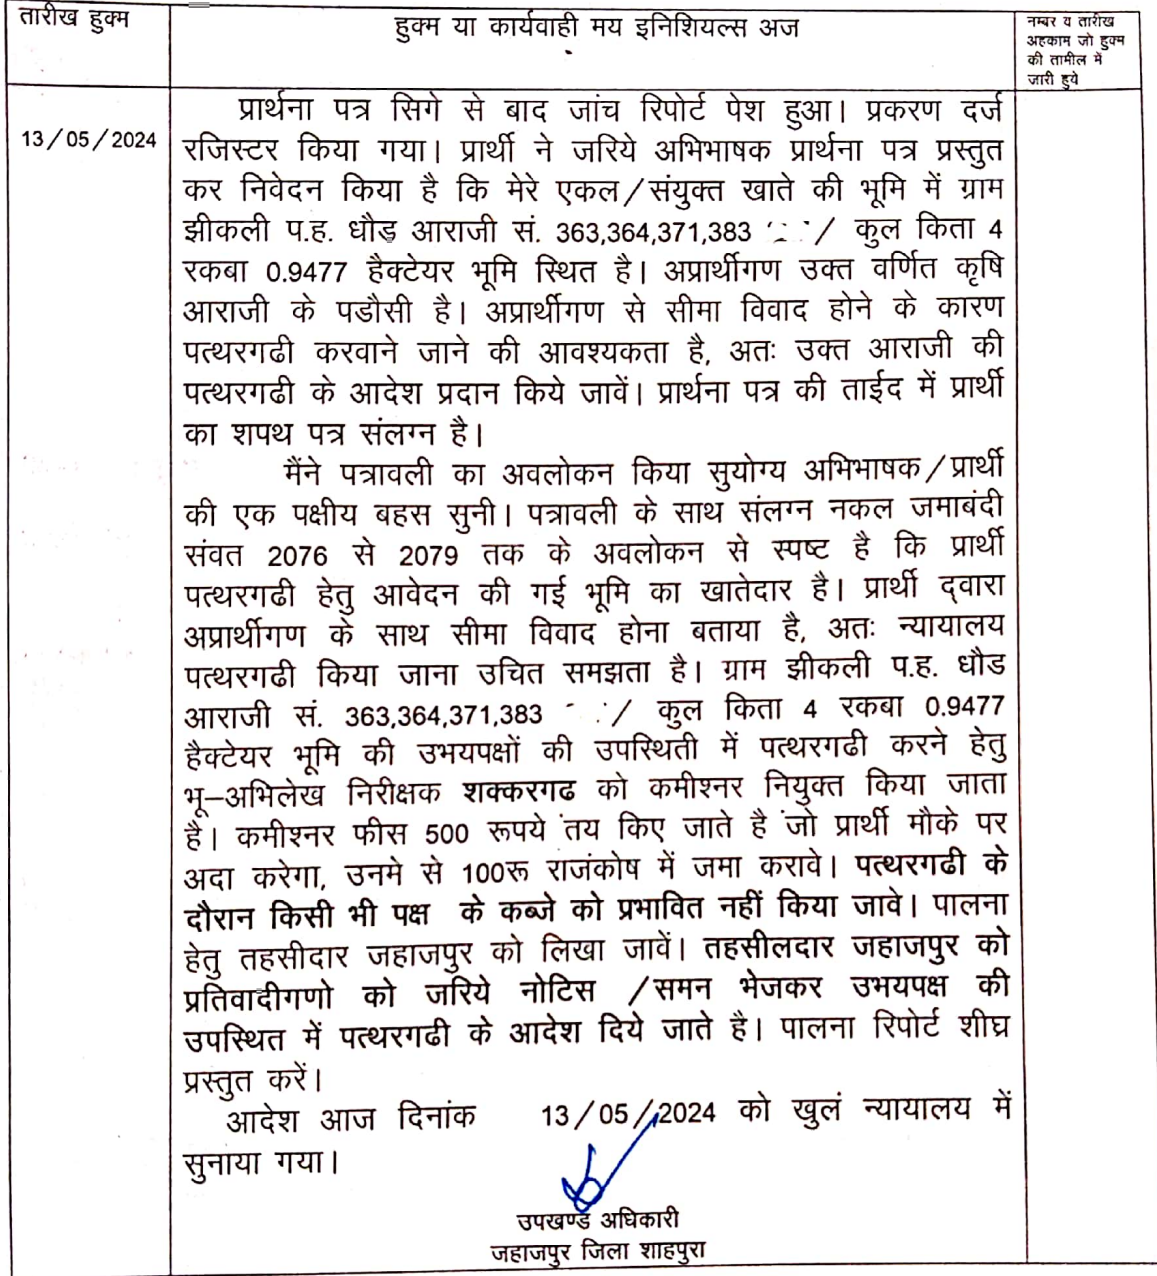 तारीख हुक्म
हुक्म या कार्यवाही मय इनिशियल्स अज
नम्बर व तारीख
अहकाम जो हुक्म
की तामील में
जारी हुये
13/05/2024
प्रार्थना पत्र सिगे से बाद जांच रिपोर्ट पेश हुआ। प्रकरण दर्ज
रजिस्टर किया गया। प्रार्थी ने जरिये अभिभाषक प्रार्थना पत्र प्रस्तुत
कर निवेदन किया है कि मेरे एकल/संयुक्त खाते की भूमि में ग्राम
झीकली प.ह. धौड़ आराजी सं. 363,364,371,383 / कुल किता 4
रकबा 0.9477 हैक्टेयर भूमि स्थित है। अप्रार्थीगण उक्त वर्णित कृषि
आराजी के पडौसी है। अप्रार्थीगण से सीमा विवाद होने के कारण
पत्थरगढी करवाने जाने की आवश्यकता है, अतः उक्त आराजी की
पत्थरगढी के आदेश प्रदान किये जावें। प्रार्थना पत्र की ताईद में प्रार्थी
का शपथ पत्र संलग्न है।
मैंने पत्रावली का अवलोकन किया सुयोग्य अभिभाषक/प्रार्थी
की एक पक्षीय बहस सुनी। पत्रावली के साथ संलग्न नकल जमाबंदी
संवत 2076 से 2079 तक के अवलोकन से स्पष्ट है कि प्रार्थी
पत्थरगढी हेतु आवेदन की गई भूमि का खातेदार है। प्रार्थी द्वारा
अप्रार्थीगण के साथ सीमा विवाद होना बताया है, अतः न्यायालय
पत्थरगढी किया जाना उचित समझता है। ग्राम झीकली प.ह. धौड
आराजी सं. 363,364,371,383 / कुल किता 4 रकबा 0.9477
हैक्टेयर भूमि की उभयपक्षों की उपस्थिती में पत्थरगढी करने हेतु
भू–अभिलेख निरीक्षक शक्करगढ को कमीश्नर नियुक्त किया जाता
है। कमीश्नर फीस 500 रूपये तय किए जाते है जो प्रार्थी मौके पर
अदा करेगा, उनमे से 100रू राजंकोष में जमा करावे। पत्थरगढी के
दौरान किसी भी पक्ष के कब्जे को प्रभावित नहीं किया जावे। पालना
हेतु तहसीदार जहाजपुर को लिखा जावें। तहसीलदार जहाजपुर को
प्रतिवादीगणो को जरिये नोटिस /समन भेजकर उभयपक्ष की
उपस्थित में पत्थरगढी के आदेश दिये जाते है। पालना रिपोर्ट शीघ्र
प्रस्तुत करें।
आदेश आज दिनांक 13/05/2024 को खुलं न्यायालय में
सुनाया गया।
उपखण्ड अधिकारी
जहाजपुर जिला शाहपुरा